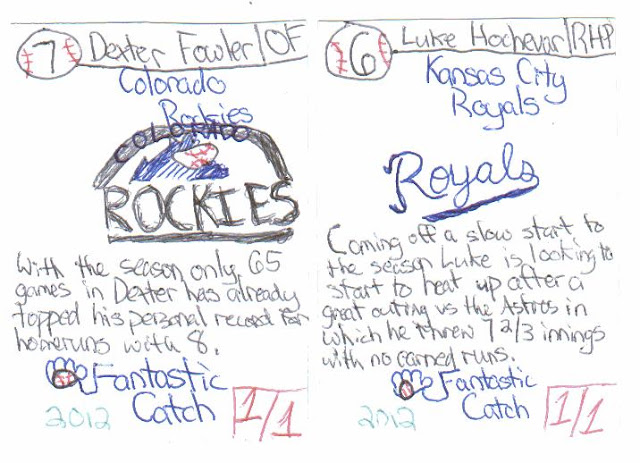 7 Dexter Fowler/OF
Colorado
Rockies
COLORADO
ROCKIES
With the season only 65
games in Dexter has already
topped his personal record for
homeruns with 8.
Fantastic
Catch
2012
1/1
6 Luke Hochevar/RHP
Kansas City
Royals
Royals
Coming off a slow start to
the season Luke is looking to
start to heat up after a
great outing vs the Astros in
which he threw 7 2/3 innings
with no earned runs.
Fantastic
Catch
2012
1/1